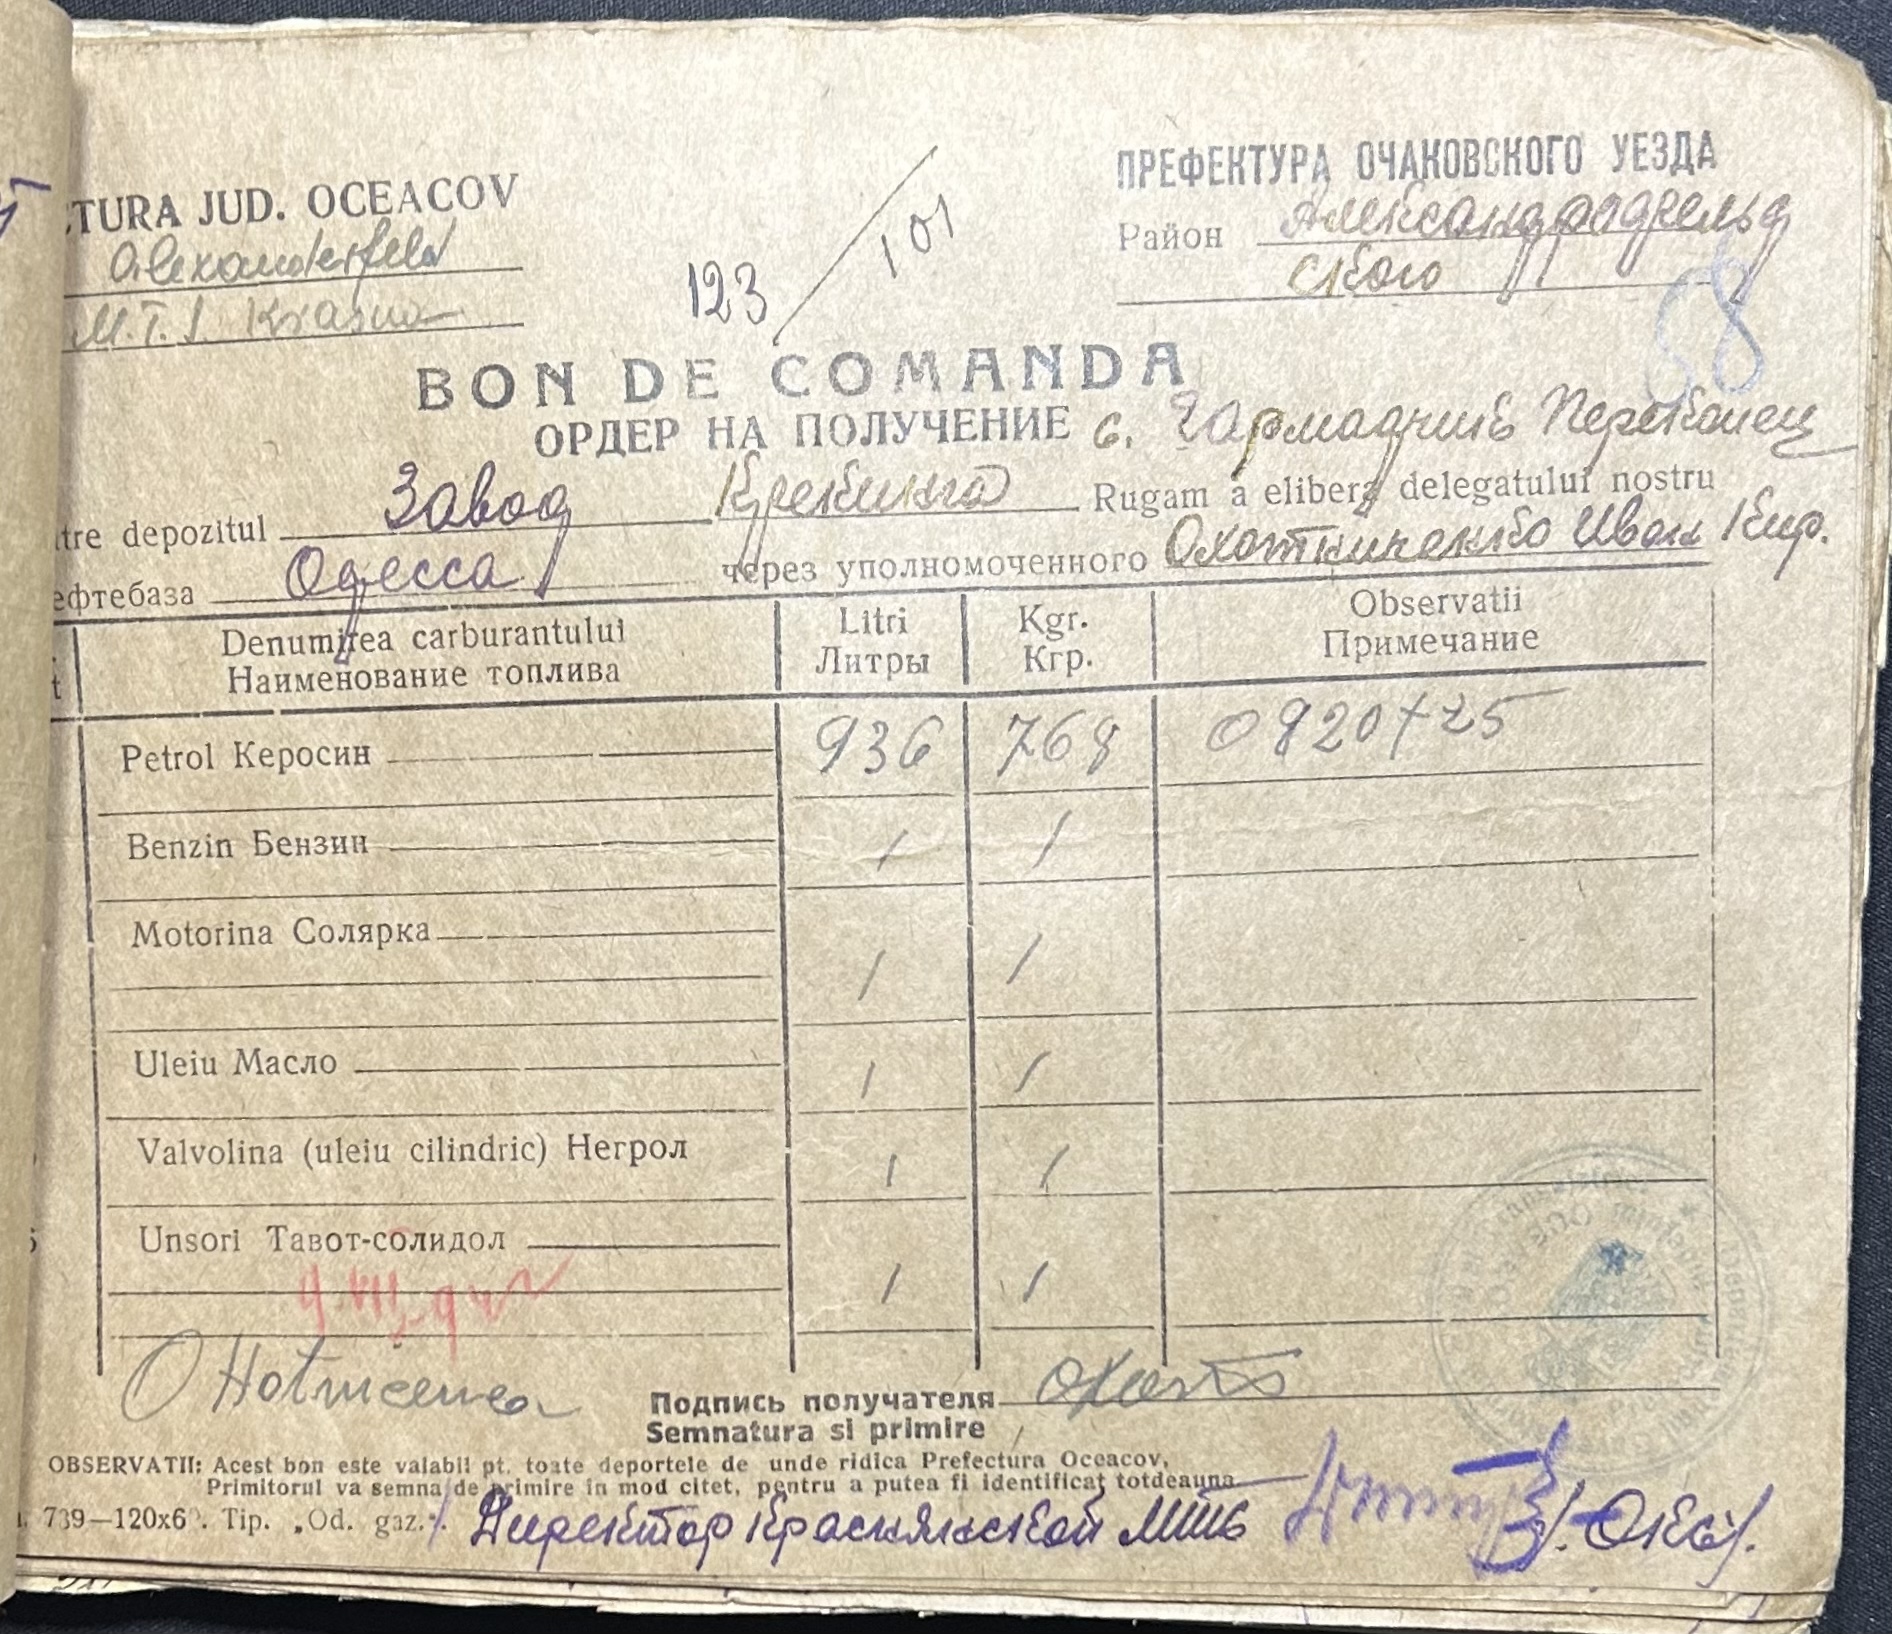 CTURA JUD. OCEACOV
Alexanderfeld
M.T.S. Krasna
123 / 101
ПРЕФЕКТУРА ОЧАКОВСКОГО УЕЗДА
Район Александрфельд
ского
68
BON DE COMANDA
ОРДЕР НА ПОЛУЧЕНИЕ с.
tre depozitul Завод Крекинга Rugam a elibera delegatului nostru
ефтебаза Одесса через уполномоченного Охотниченко Иван Кир.
Denumirea carburantului Litri Kgr. Observatii
Наименование топлива Литры Кгр. Примечание
Petrol Керосин 936 768 0820+25
Benzin Бензин / /
Motorina Солярка / /
Uleiu Масло / /
Valvolina (uleiu cilindric) Негрол / /
Unsori Тавот-солидол / /
Подпись получателя
Semnatura si primire
OBSERVATII: Acest bon este valabil pt. toate deportele de unde ridica Prefectura Oceacov,
Primitorul va semna de primire in mod citet, pentru a putea fi identificat totdeauna
739—120x60. Tip. „Od. gaz.".
Директор Краснянской МТС